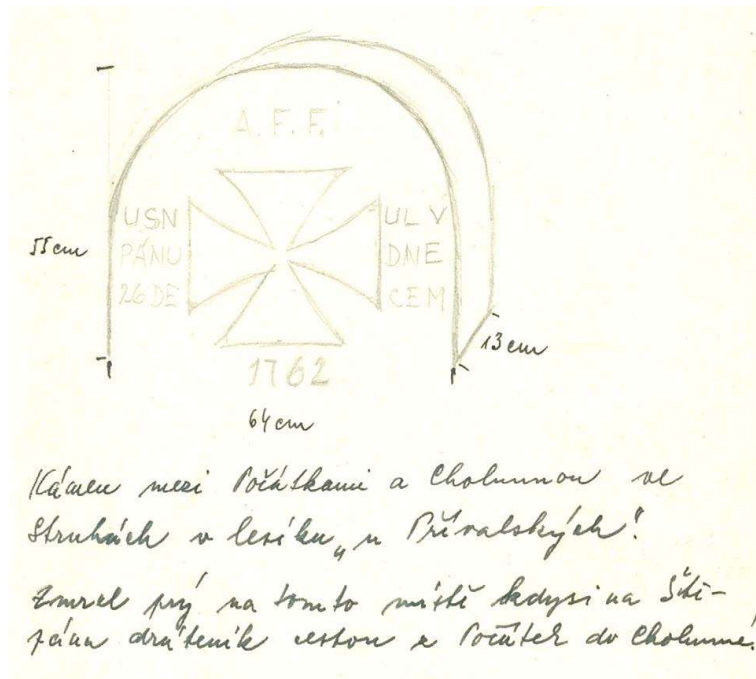 A. F. F.
USN UL V
PÁNU DNE
26 DE CEM
1762
55 cm
13 cm
64 cm
Kámen mezi Počátkami a Cholunnou ve
Struhách v lesíku „u Přívalských“.
Zmrzl prý na tomto místě kdysi na Ště-
pána dráteník cestou z Počátek do Cholunné.